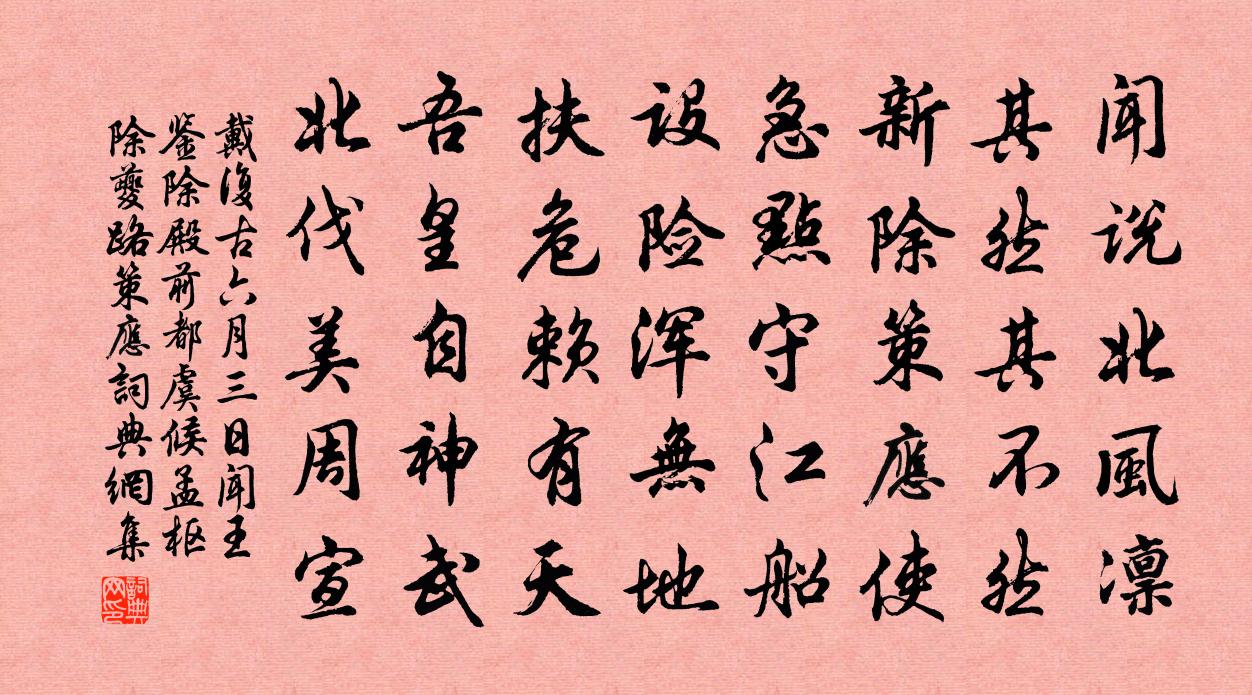 闻说北風凛
其然其不然
新除策應使
急點守江船
设险浑無地
扶危赖有天
吾皇自神武
北伐美周宣
戴復古六月三日闻王
鉴除殿前都虞候孟枢
除夔路策應詞典網集
詞典网印